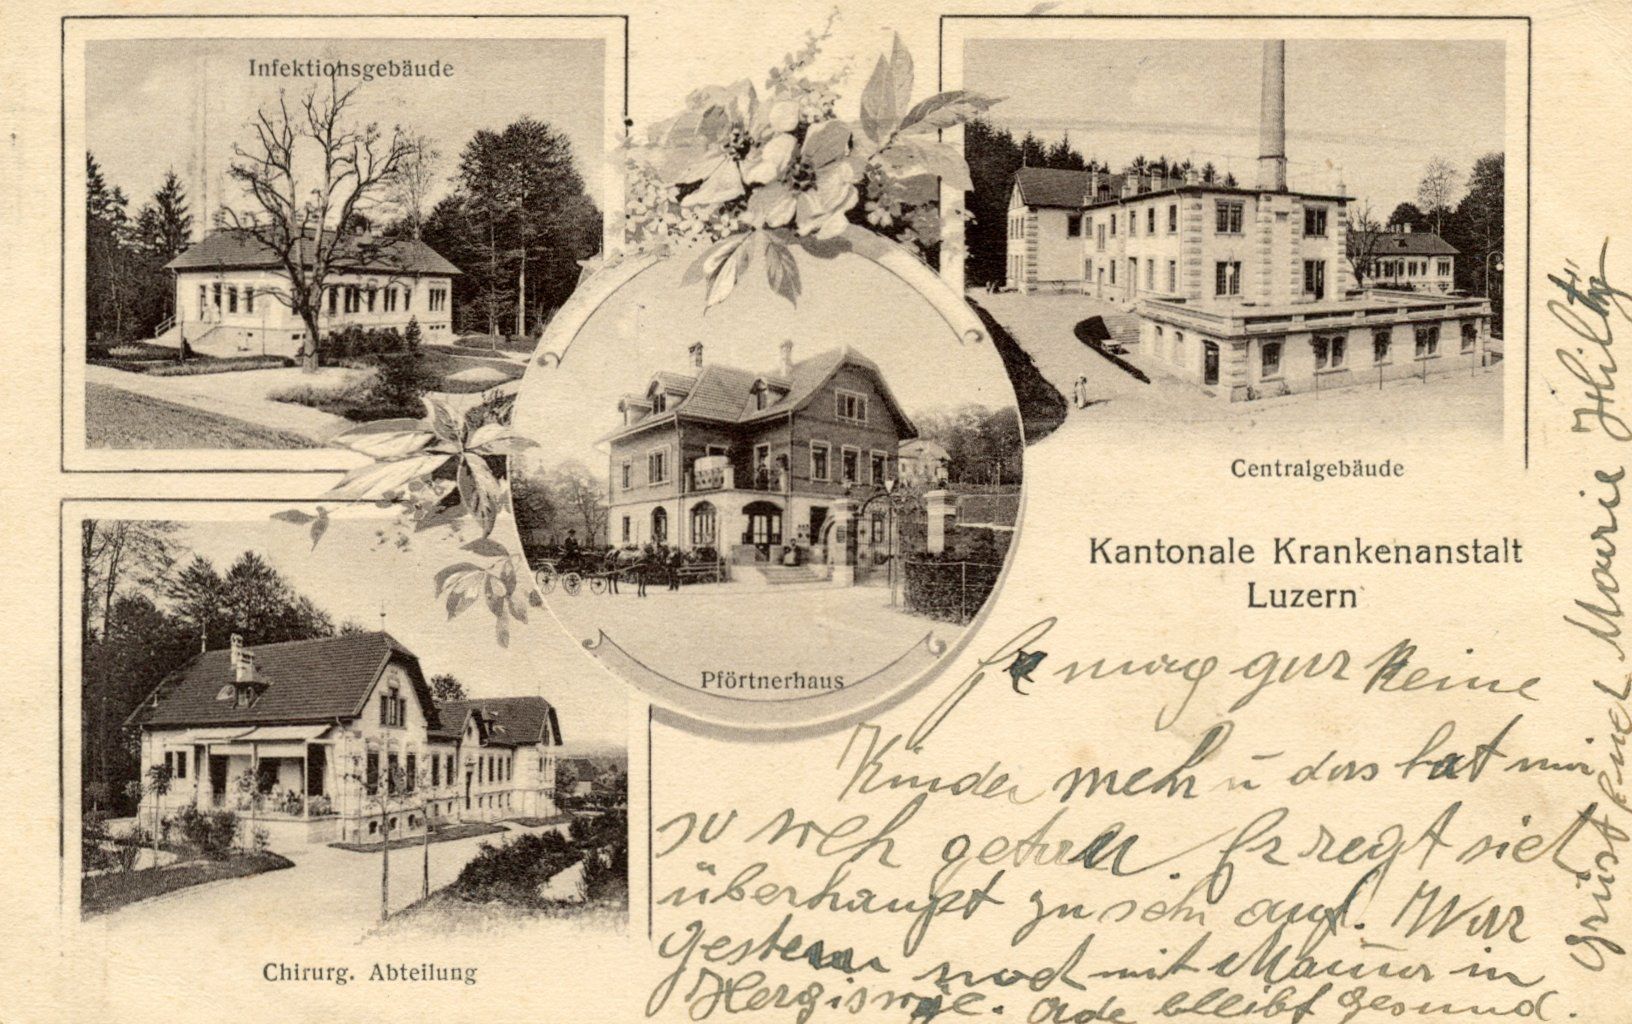 Infektionsgebäude
Centralgebäude
Kantonale Krankenanstalt
Luzern
Pförtnerhaus
Chirurg. Abteilung
Er mag gar keine
Kinder mehr u das hat mir
so weh getan. Er regt sich
überhaupt zu sehr auf. War
gestern noch mit in
Hergiswil. Ade bleibt gesund.
Grüsst Marie Hilty